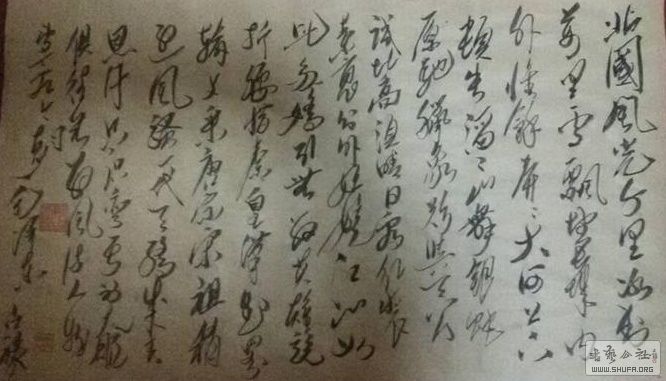 北國風光千里冰封
萬里雪飄望長城内
外惟餘莽々大河上下
頓失滔々山舞銀蛇
原馳蠟象欲與天公
試比高須晴日看紅裝
素裹分外妖嬈江山如
此多嬌引無數英雄競
折腰惜秦皇漢武略
輸文采唐宗宋祖稍
遜風騷一代天驕成吉
思汗只识彎弓射大雕
俱往矣數風流人物
還看今朝 毛澤東
书艺公社
WWW.SHUFA.ORG